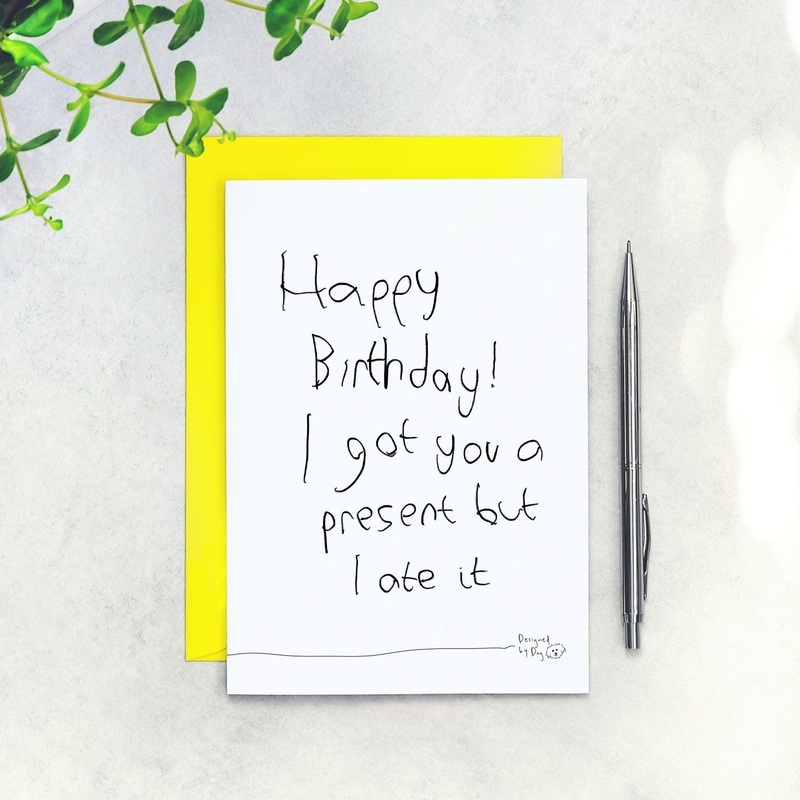 Happy
Birthday!
I got you a
present but
I ate it
Designed
by Dog